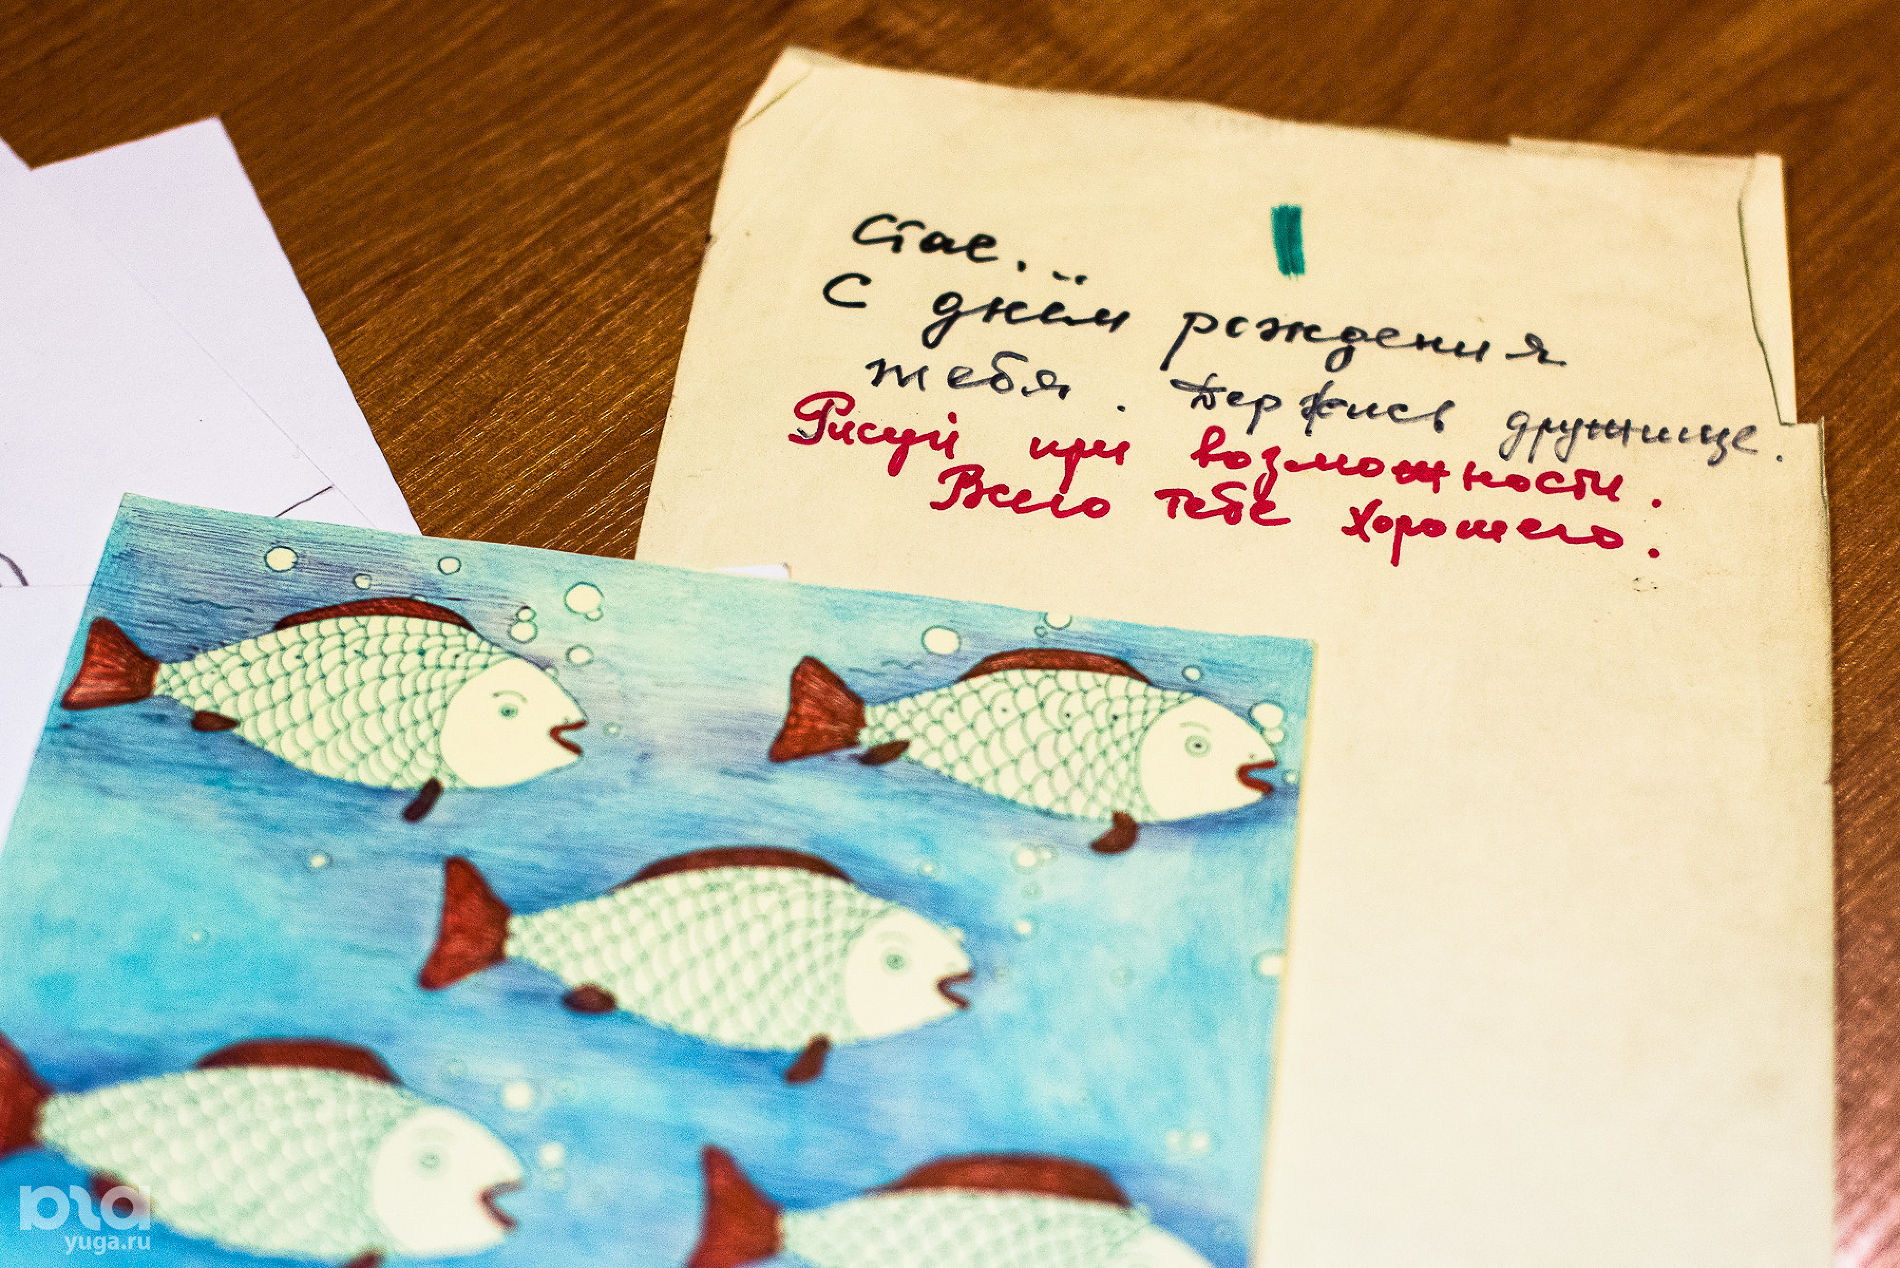 Стас...
С днём рождения
тебя. Держись дружище.
Рисуй при возможности.
Всего тебе хорошего.
yuga.ru